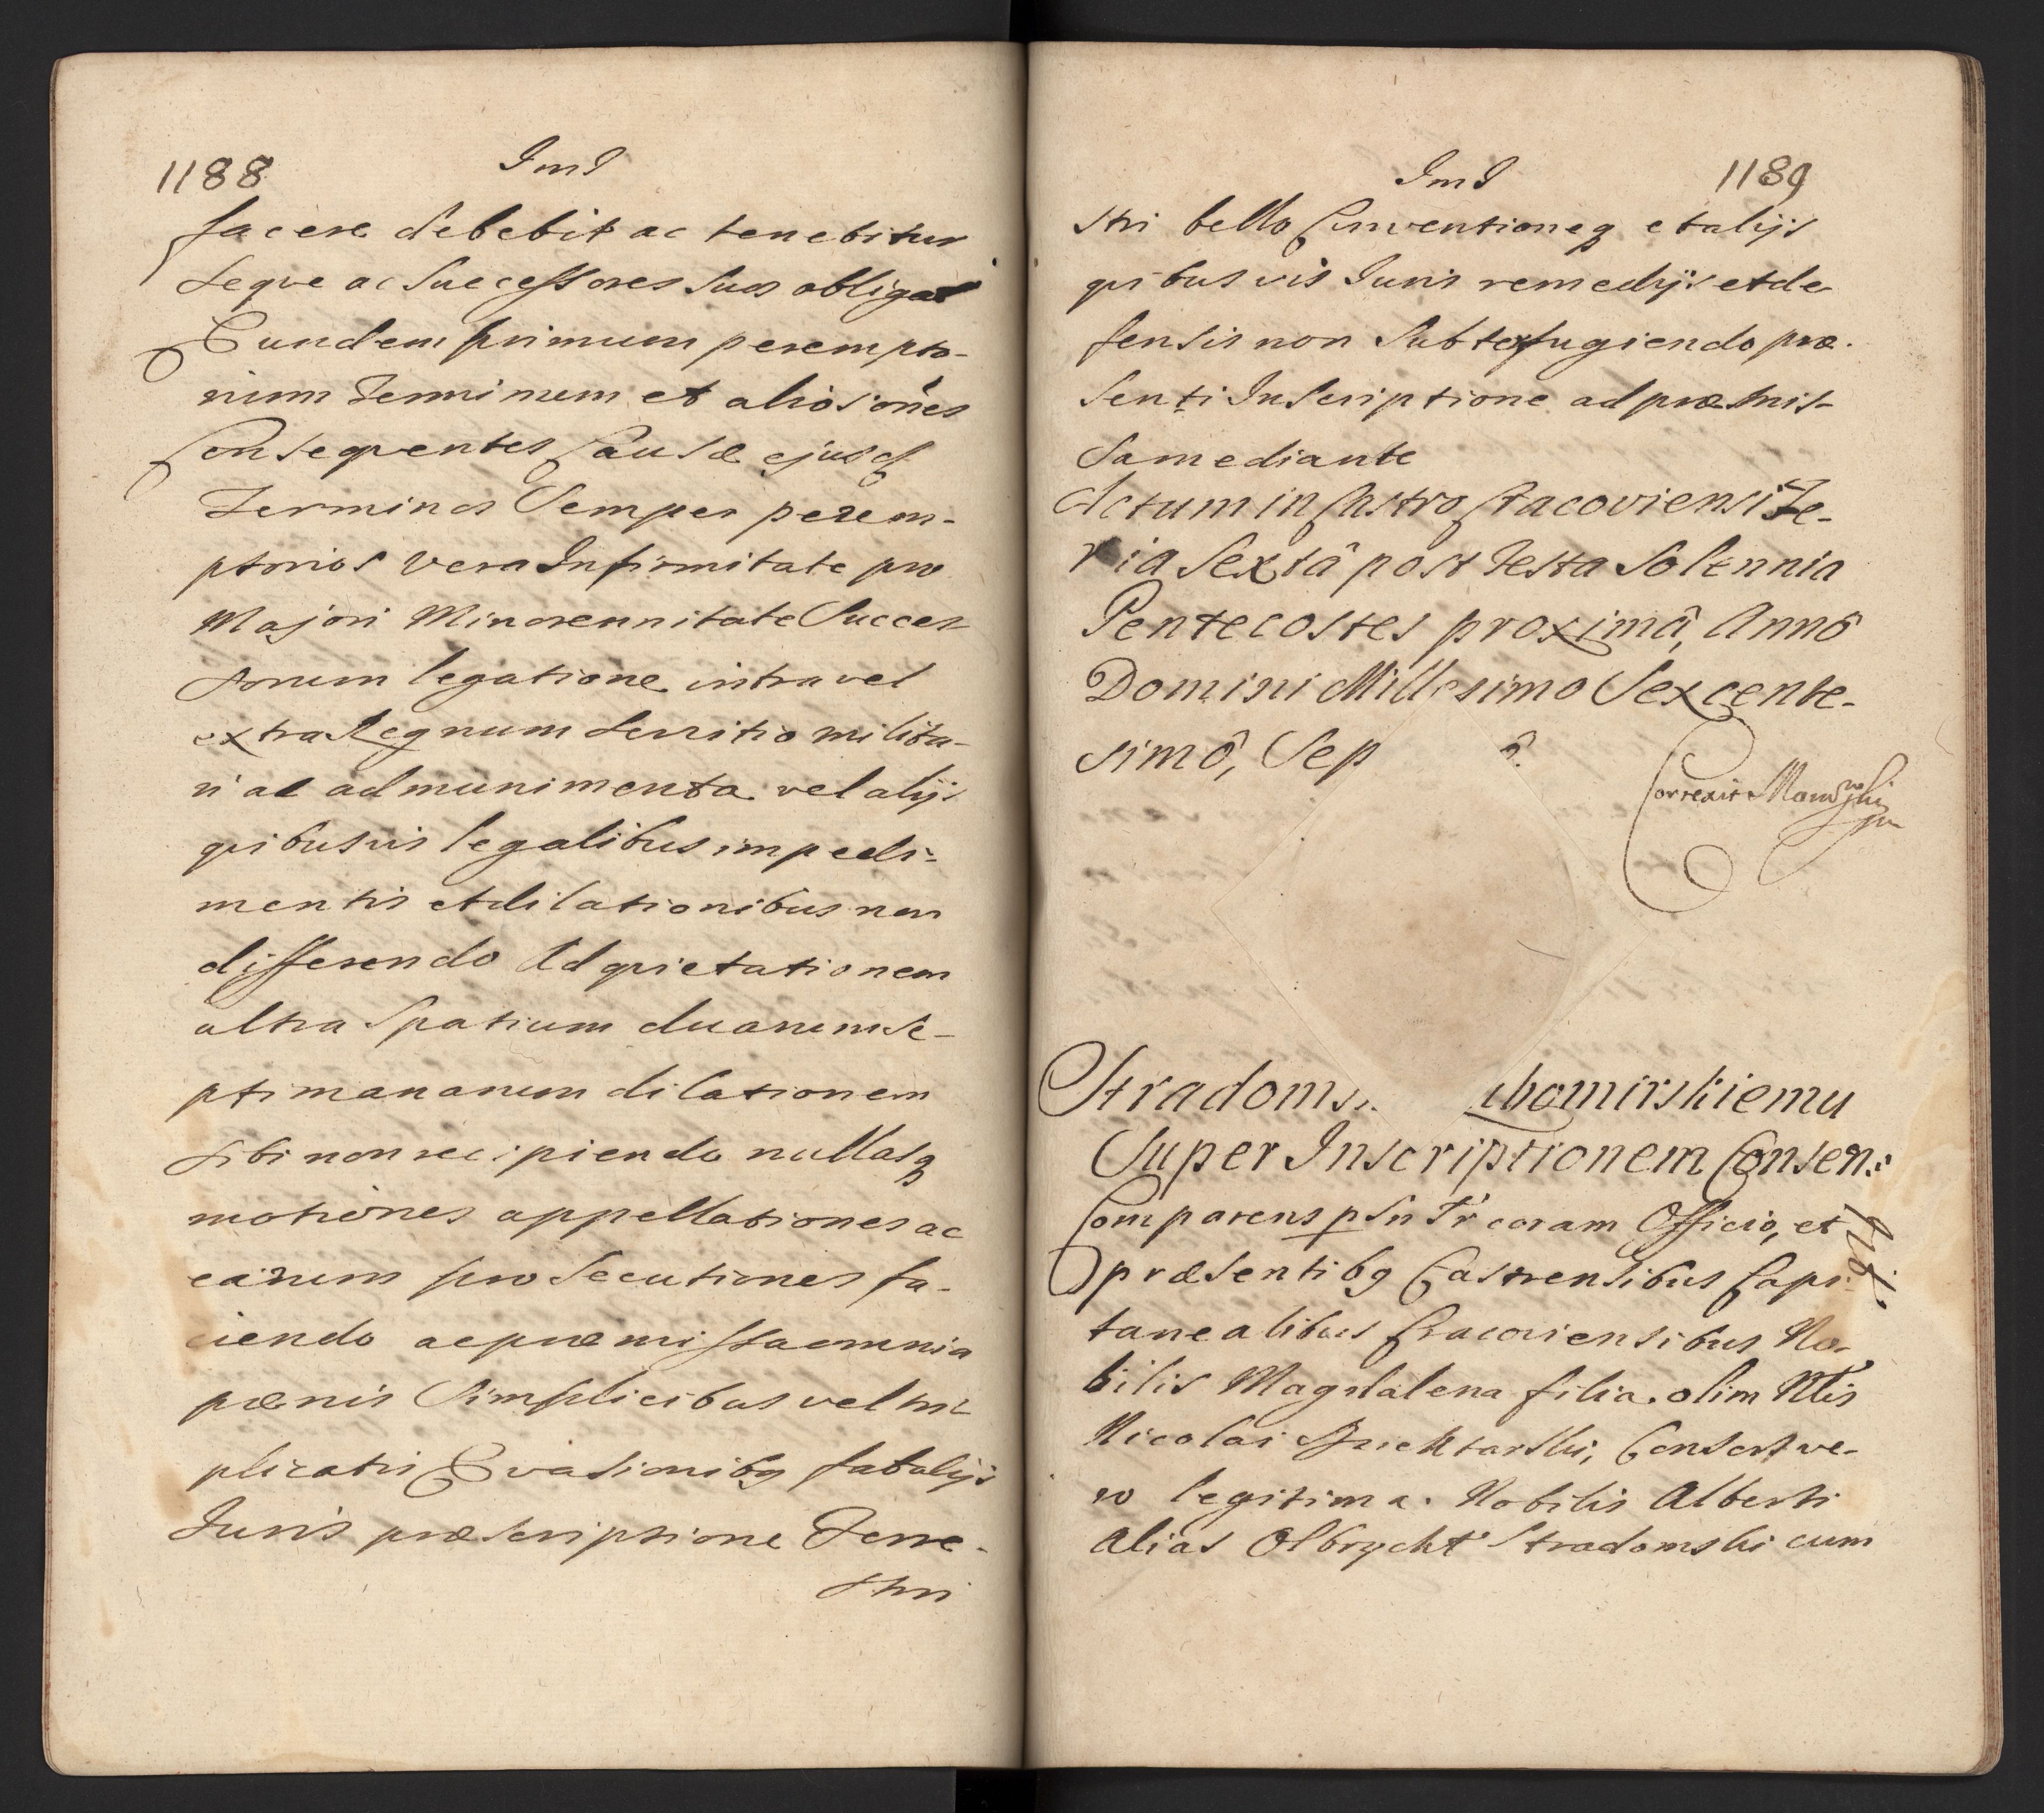 1188
ImI
facere debebit ac tenebitur
seque ac Successores suos obligat
Eundem primum perempto-
rium Terminum et alios oñes
Consequentes Causæ ejusd
Terminos Semper perem-
ptorios vera Infirmitate pro
Majori Minorennitate Succes-
sorum legatione intra vel
extra Regnum servitio milita-
ri ac ad munimenta vel alijs
quibusvis legalibus impedi-
mentis et dilationibus non
differendo Ad quietationem
ultra Spatium duarum se-
ptimanarum dilationem
sibi non recipiendo nullasq
motiones appellationes ac
earum prosecutiones fa-
ciendo ac præmissa omnia
pænis Simplicibus vel tri-
plicatis Evasionibq
Juris præscriptione Terre-
stri
ImI
1189
stri bello Conventioneq et alijs
quibusvis Juris remedijs et de
fensis non Subterfugiendo præ.
senti Inscriptione ad præmis-
sa mediante
Actum in Castro Cracoviensi Fe-
ria Sextâ post Festa Solennia
Pentecostes proximâ, Annô
Domini Millesimo Sexcente-
simô, Sep ô.
Correxit
Stradoms.. ubomirskiemu
Super Inscriptionem Consen:
Comparens psn Tr coram Officio, et
præsentibq Castrensibus Capi-
tanealibus Cracoviensibus No-
bilis Magdalena filia olim Nlis
Nicolai Consors ve-
ro legitima Nobilis Alberti
alias Olbrycht Stradomski cum